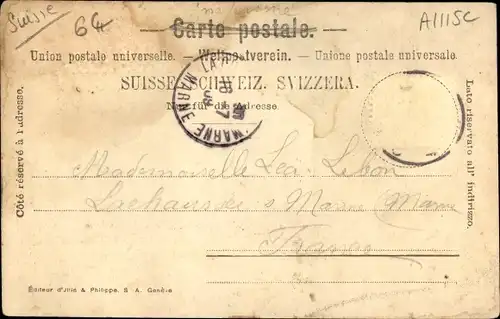 Suisse
64
A1115C
Carte postale.
Union postale universelle. — Weltpostverein. — Unione postale universale.
SUISSE. SCHWEIZ. SVIZZERA.
Nur für die Adresse.
Côté réservé à l'adresse.
Lato riservato all' indirizzo.
MARNE
MARNE
Mademoiselle Léa Lebon
s Marne Marne
France
Éditeur d'Jllio & Philippe. S. A. Genève